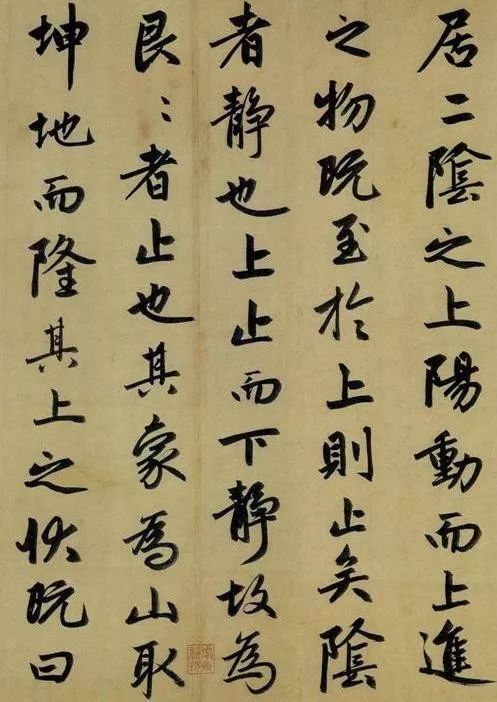 居二陰之上陽動而上進
之物既至於上則止矣陰
者靜也上止而下靜故為
艮〻者止也其象為山取
坤地而隆其上之狀既曰